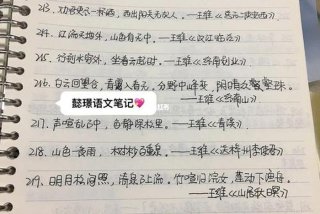 213、劝君更尽一杯酒，西出阳关无故人，——王维《送元二使安西》
214、江流天地外，山色有无中，——王维《汉江临泛》
215、行到水穷处，坐看云起时，——王维《终南别业》
216、白云回望合，青霭入看无，分野中峰变，阴晴众壑殊。
懿璟语文笔记💗
——王维《终南山》
217、声喧乱石中，色静深松里。——王维《青溪》
218、山中一夜雨，树杪百重泉。——王维《送梓州李使君》
219、明月松间照，清泉石上流。竹喧归浣女，莲动下渔舟。
——王维《山居秋暝》